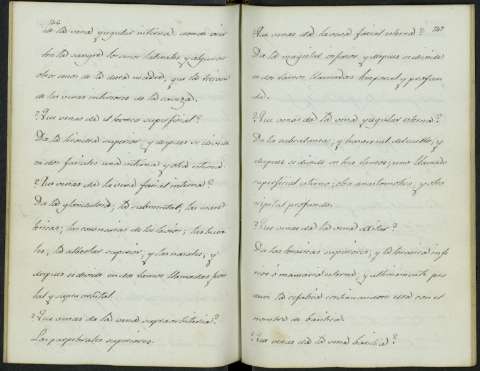 146
de la vena yugular interna
los senos laterales, y algunos
otros senos de la dura madre, que la traen
de las venas interiores de la cabeza.
¿Que venas da el tronco superficial?
Da la tiroidea superior, y despues se divide
en dos faciales una interna y otra externa
¿Que venas da la vena facial interna?
Da la glosiadina, la submental, las
las coronarias de los labios, las
les, la alveolar superior, y las nasales, y
despues se divide en dos ramos llamados fron
tal y supra orbital.
¿Que venas da la vena supraorbitaria?
Las palpebrales superiores.
147
¿Que venas da la vena facial externa?
Da la maxilar inferior, y despues se divide
en dos ramos, llamados temporal y profun
da.
¿Que venas da la vena yugular externa?
Da la subcutanea, y humeral del cuello, y
despues se divide en tres ramos; uno llamado
superficial externo, otro anastomotico, y otro
occipital profundo.
¿Que venas da la vena axilar?
Da las toracicas superiores, y la toracica infe
rior ó mamaria externa, y ultimamente pro
duce la cefalica continuandose esta con el
nombre de basilica.
¿Que venas da la vena basilica?